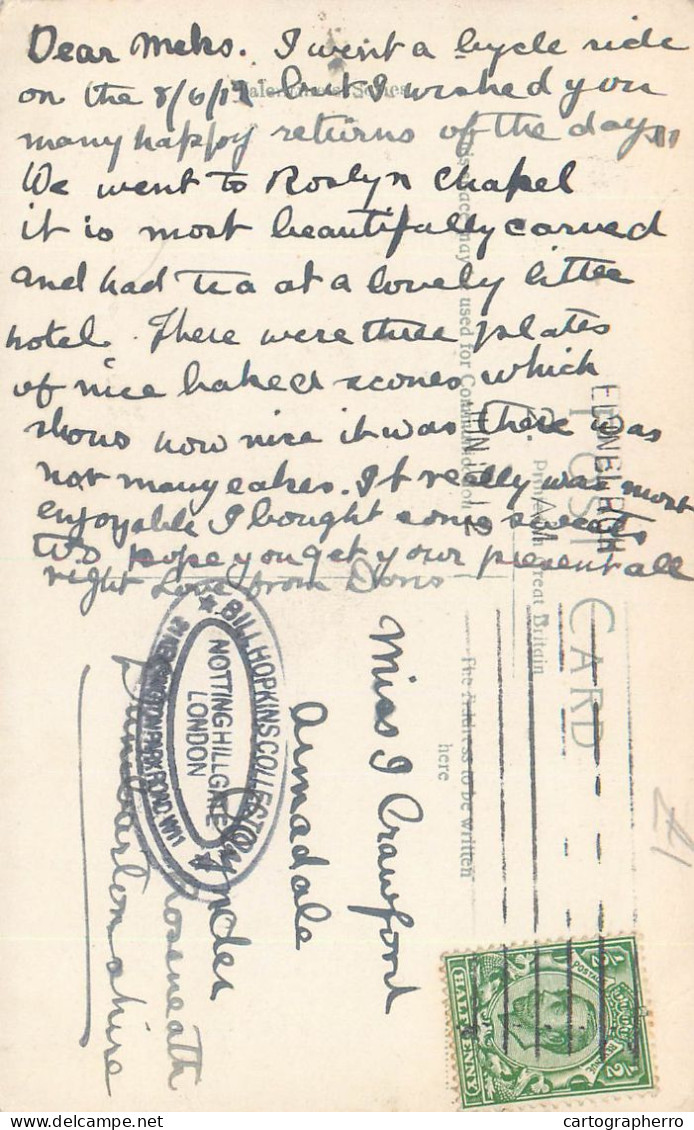 Dear Meks. I went a bycle ride
on the 8/6/12 but I wished you
many happy returns of the day
We went to Roslyn Chapel
it is most beautifully carved
and had tea at a lovely little
hotel. There were three plates
of nice baked scones which
shows how nice it was there was
not many cakes. It really was most
enjoyable I bought some sweets
too hope you get your present all
right Love from Doris
Valentines Series
This space may be used for Communication
Printed in Great Britain
POST CARD
The Address to be written
here
EDINBURGH
JUN 9 12
Miss I Crawford
Armadale
Rynder
Roseneath
Dumbartonshire
BILL HOPKINS COLLECTION
NOTTING HILL GATE
LONDON
KENSINGTON PARK ROAD, W11
£1
POSTAGE
HALFPENNY
1/2
cartographero.com